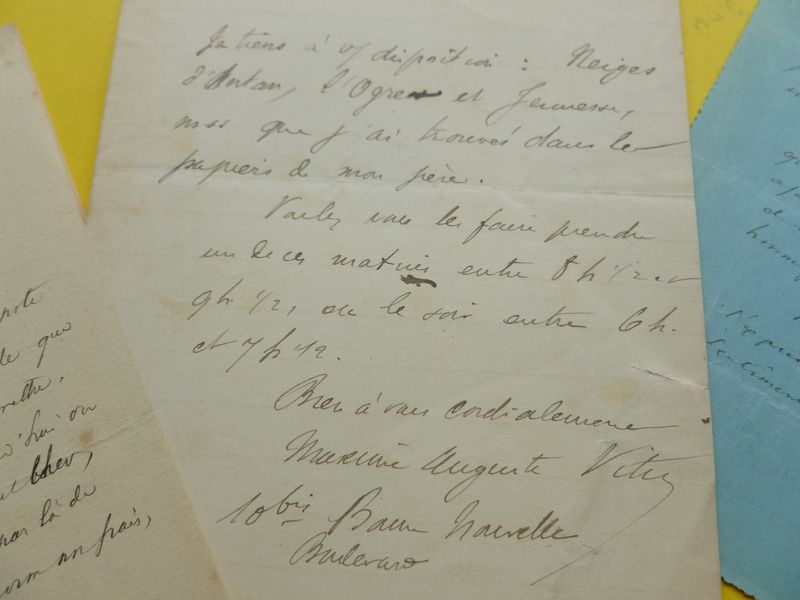 Je tiens à v/ disposition : Neiges
d'Antan, l'Ogre et Jeunesse,
mss que j'ai trouvés dans les
papiers de mon père.
Voulez vous les faire prendre
un de ces matins entre 8 h 1/2 et
9 h 1/2, ou le soir entre 6 h.
et 7 h 1/2.
Bien à vous cordialement
Maxime Auguste Vitu
10 bis Bonne Nouvelle
Boulevard
de que
d'ici ou
chez
par là de
mon frais,